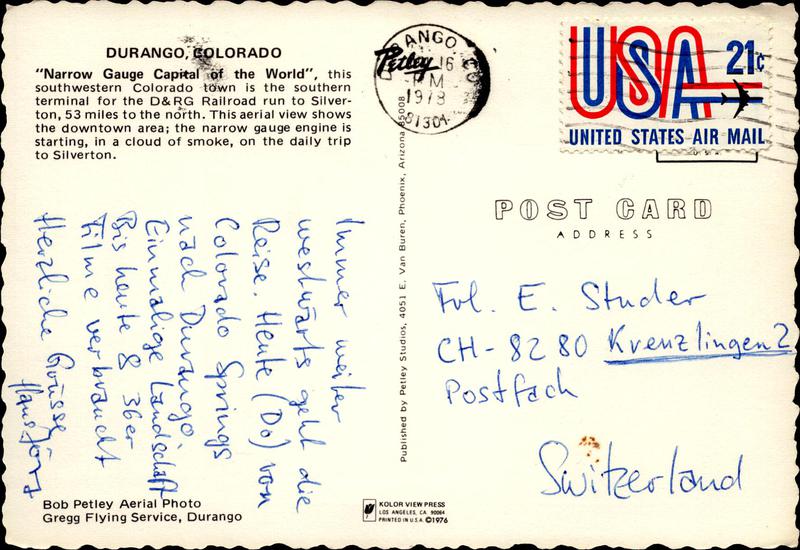 DURANGO, COLORADO
"Narrow Gauge Capital of the World", this
southwestern Colorado town is the southern
terminal for the D&RG Railroad run to Silver-
ton, 53 miles to the north. This aerial view shows
the downtown area; the narrow gauge engine is
starting, in a cloud of smoke, on the daily trip
to Silverton.
Immer weiter
westwärts geht die
Reise. Heute (Do) von
Colorado Springs
nach Durango
Einmalige Landschaft
Bis heute 8 36er
Filme verbraucht
Herzliche Grüsse
Hansjörg
Bob Petley Aerial Photo
Gregg Flying Service, Durango
Published by Petley Studios, 4051 E. Van Buren, Phoenix, Arizona 85008
Petley
KOLOR VIEW PRESS
LOS ANGELES, CA. 90064
PRINTED IN U.S.A. ©1976
16
PM
1978
81301
USA 21c
UNITED STATES AIR MAIL
POST CARD
ADDRESS
Frl. E. Studer
CH-8280 Kreuzlingen 2
Postfach
Switzerland